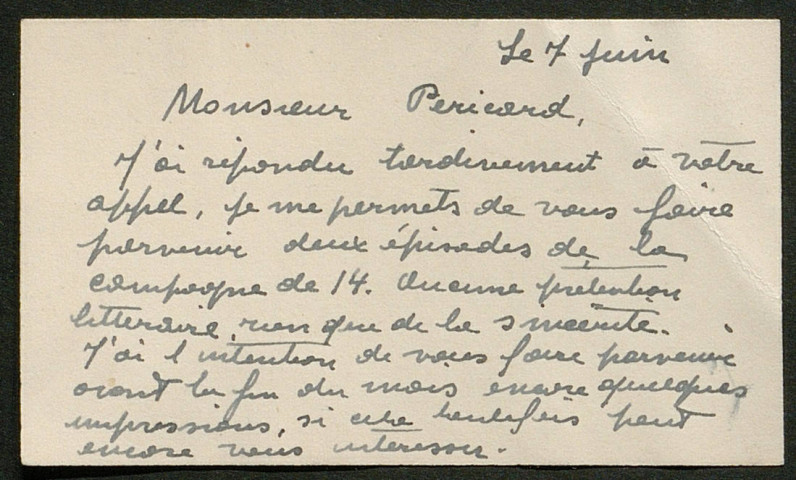 Le 7 juin
Monsieur Pericard,
J'ai répondu tardivement à vôtre
appel, je me permets de vous faire
parvenir deux épisodes de la
campagne de 14. Aucune prétention
litteraire, rien que de la sincérité.
J'ai l'intention de vous faire parvenir
avant la fin du mois encore quelques
impressions, si cela toutefois peut
encore vous intéresser.